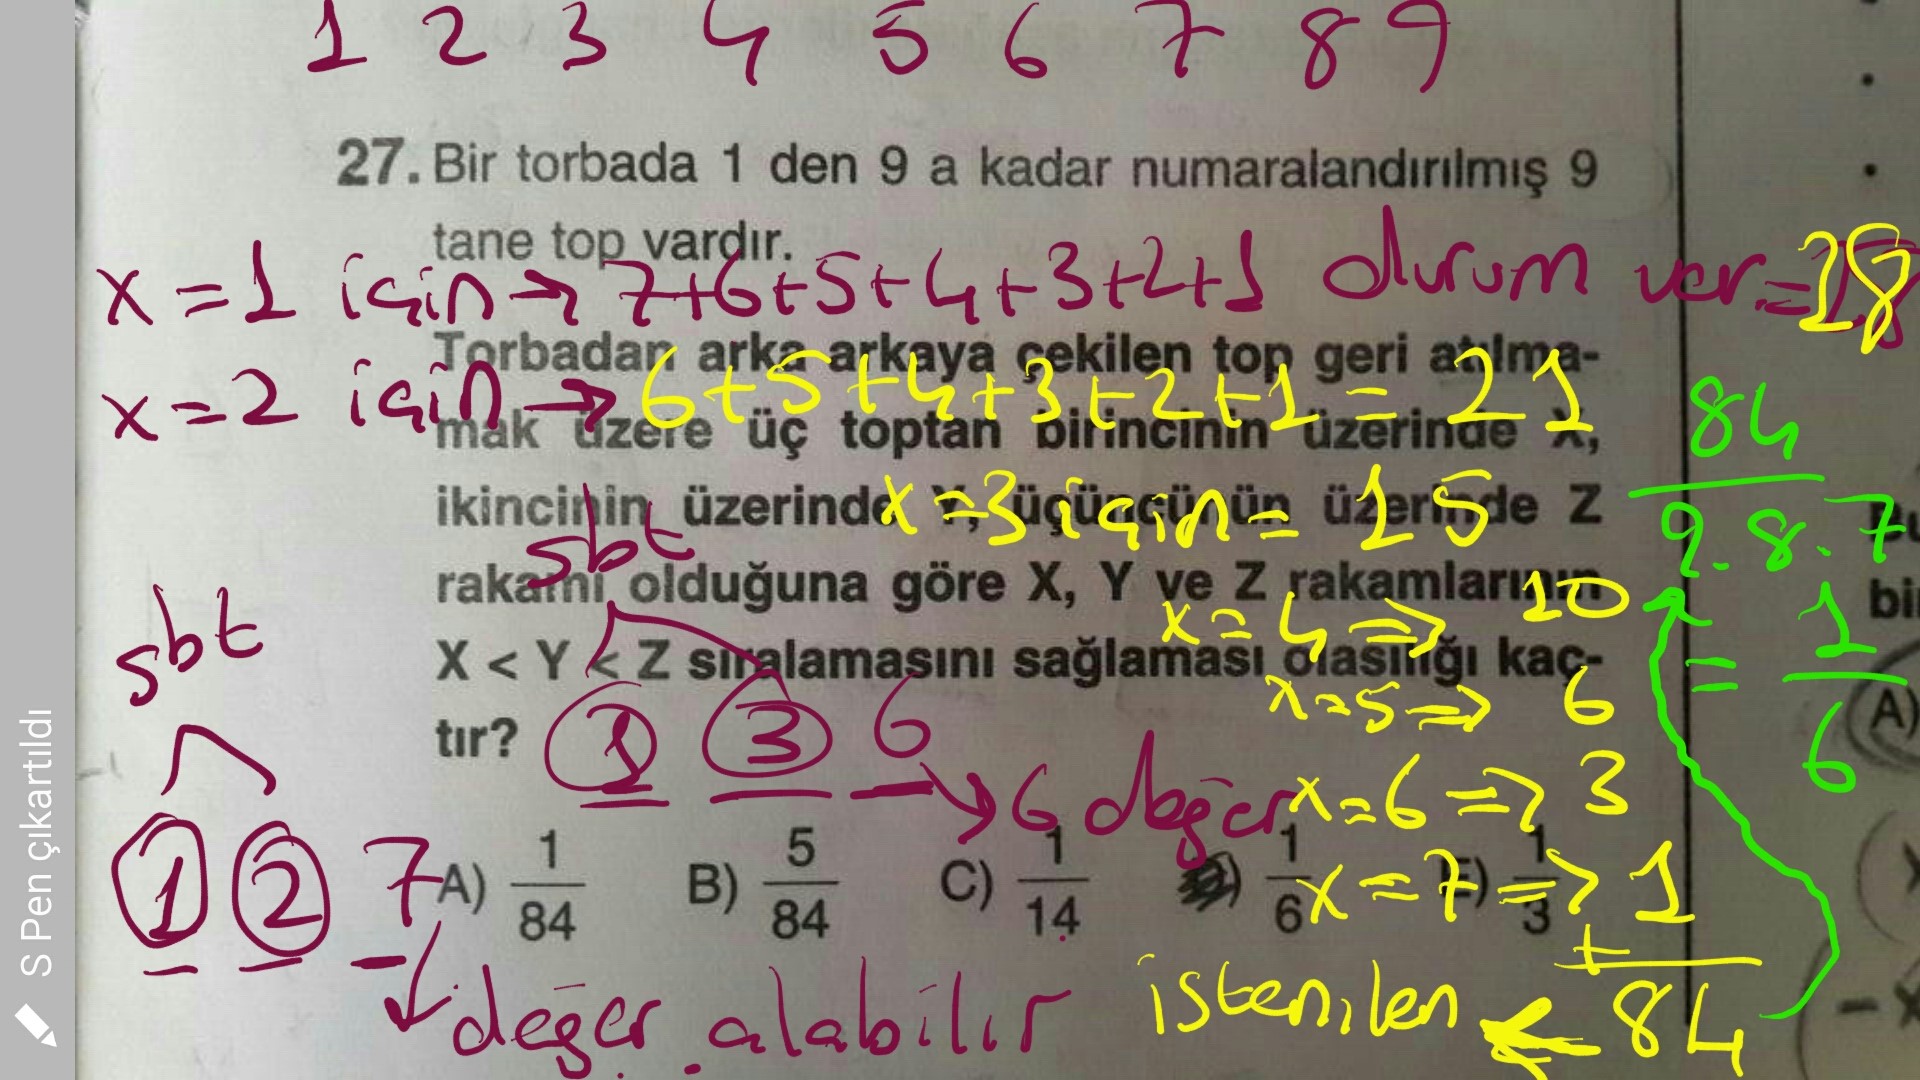 1 2 3 4 5 6 7 8 9
27. Bir torbada 1 den 9 a kadar numaralandırılmış 9
tane top vardır.
x = 1 için → 7+6+5+4+3+2+1 durum var = 28
Torbadan arka arkaya çekilen top geri atılma-
x = 2 için → 6+5+4+3+2+1 = 21
mak üzere üç toptan birincinin üzerinde X,
ikincinin üzerinde Y, üçüncünün üzerinde Z
x = 3 için = 15
sbt
rakamı olduğuna göre X, Y ve Z rakamlarının
x = 4 => 10
X < Y < Z sıralamasını sağlaması olasılığı kaç-
x = 5 => 6
tır?
1 3 6 → 6 değer
x = 6 => 3
sbt
1 2 7
A) 1/84 B) 5/84 C) 1/14 1/6 E) 1/3
x = 7 => 1
değer alabilir
+
istenilen ← 84
84
9.8.7
= 1/6
A)
S Pen çıkartıldı